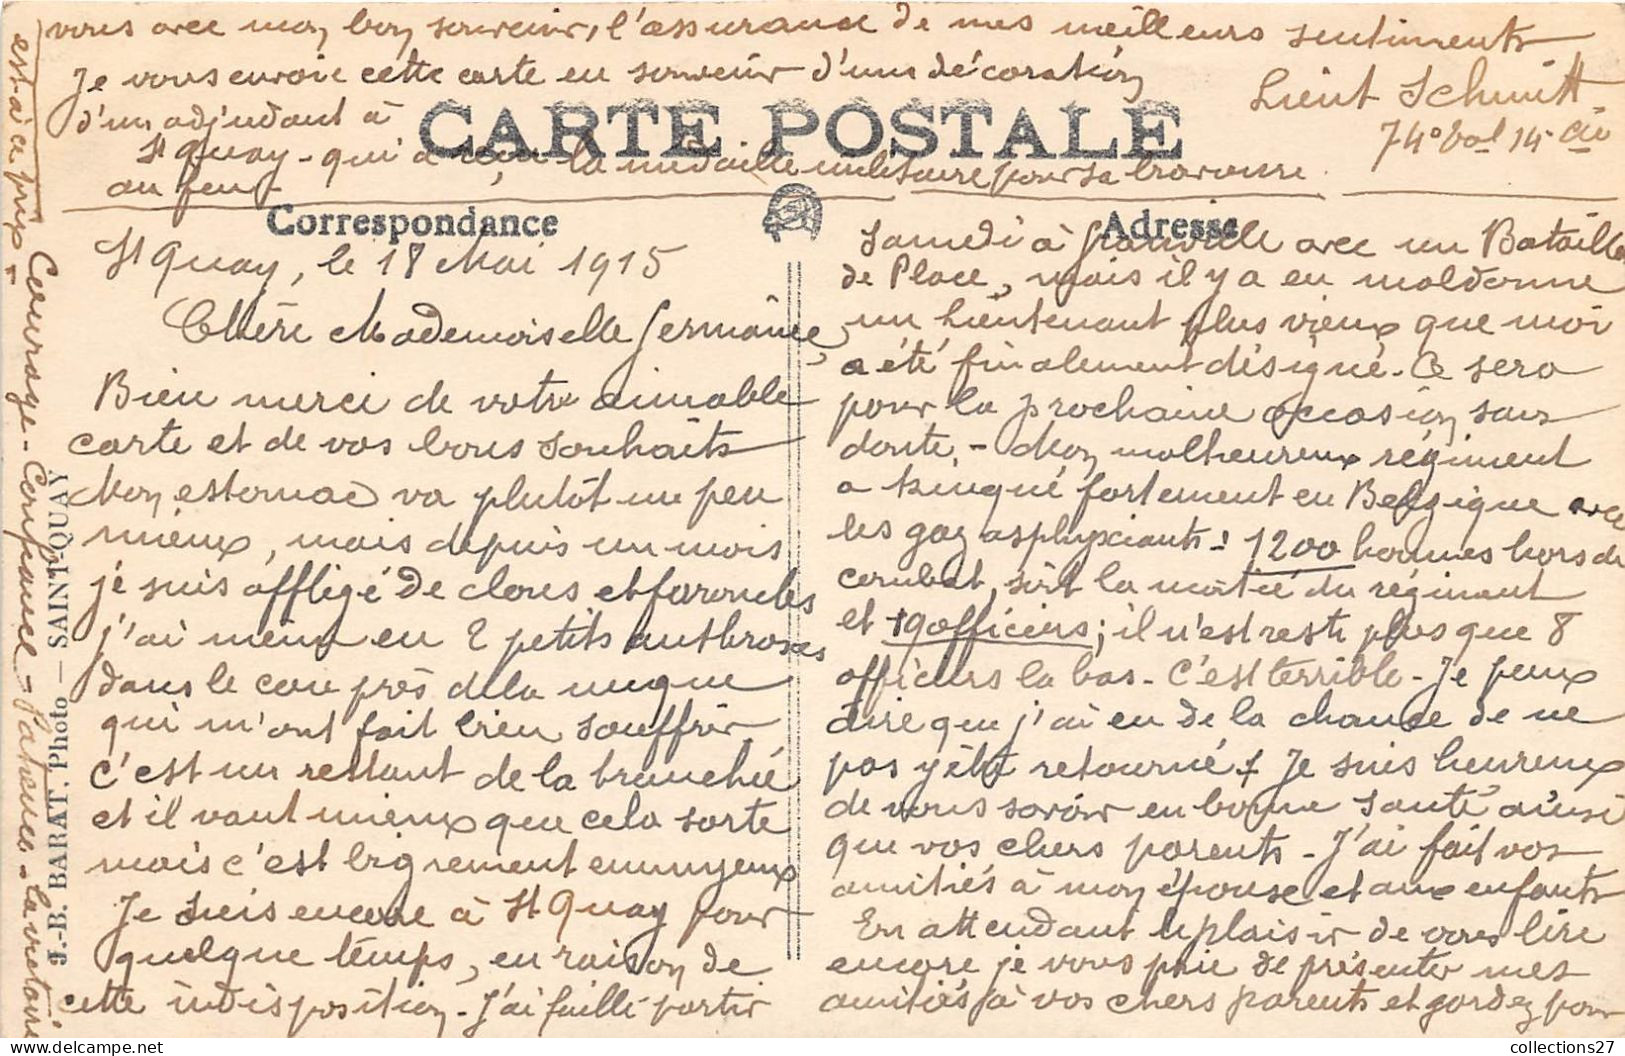 vous avec mon bon souvenir, l'assurance de mes meilleurs sentiments
Je vous envoie cette carte en souvenir d'une décoration
d'un adjudant à
St Quay - qui a reçu la médaille militaire pour sa bravoure
au feu -
Lieut Schmitt
74º 14e Cie
CARTE POSTALE
Correspondance
Adresse
St Quay, le 18 Mai 1915
Chère Mademoiselle Germaine,
Bien merci de votre aimable
carte et de vos bons souhaits
Mon estomac va plutôt un peu
mieux, mais depuis un mois
je suis affligé de clous et furoncles
j'ai même eu 2 petits anthraxes
dans le cou près de la nuque
qui m'ont fait bien souffrir.
c'est un restant de la tranchée
et il vaut mieux que cela sorte
mais c'est bigrement ennuyeux
Je suis encore à St Quay pour
quelque temps, en raison de
cette indisposition - J'ai failli partir
Samedi à Granville avec un Bataillon
de Place, mais il y a eu maldonne
un Lieutenant plus vieux que moi
a été finalement désigné. Ce sera
pour la prochaine occasion sans
doute. - Mon malheureux régiment
a trinqué fortement en Belgique avec
les gaz asphyxiants! 1200 hommes hors de
combat, soit la moitié du régiment
et 19 officiers; il n'est resté plus que 8
officiers la bas - C'est terrible - Je peux
dire que j'ai eu de la chance de ne
pas y être retourné! Je suis heureux
de vous savoir en bonne santé ainsi
que vos chers parents - J'ai fait vos
amitiés à mon épouse et aux enfants
En attendant le plaisir de vous lire
encore je vous prie de présenter mes
amitiés à vos chers parents et gardez pour
Courage - Confiance - Patience - la victoire
est à ce prix -
J.-B. BARAT, Photo — SAINT-QUAY
collections27